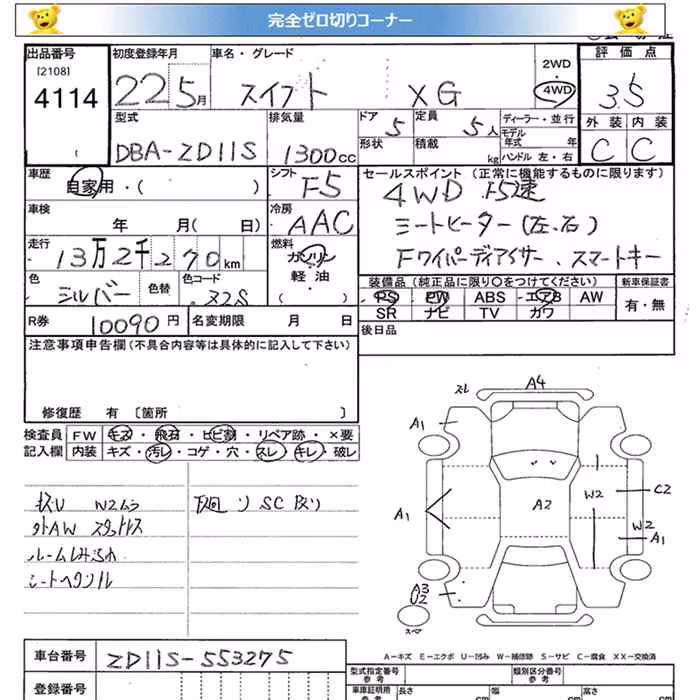 完全ゼロ切りコーナー
出品番号
[2108]
4114
初度登録年月
22 5月
車名・グレード
スイフト XG
2WD
4WD
評価点
3.5
外装 内装
C C
型式
DBA-ZD11S
排気量
1300cc
ドア
5
形状
定員
5人
積載
kg
ディーラー・並行
モデル
年式 年
ハンドル 左・右
車歴
自家用・( )
シフト
F5
セールスポイント (正常に機能するものに限ります)
4WD F5速
シートヒーター(左、右)
Fワイパーディアイサー、スマートキー
車検
年 月( 日)
冷房
AAC
走行
13万2千270km
燃料
ガソリン
軽油
( )
色
シルバー
色替
色コード
Z2S
装備品(純正品に限り〇をつけてください)
新車保証書
PS PW ABS エアB AW
SR ナビ TV カワ
有・無
R券
10090円
名変期限 月 日
後日品
注意事項申告欄(不具合内容等は具体的に記入して下さい)
修復歴 有 〔箇所 〕
検査員
記入欄
FW キズ・飛石・ヒビ割・リペア跡・×要
内装 キズ・汚レ・コゲ・穴・スレ・キレ・破レ
W2ムラ
外AW スタットレス
ルームしみ汚れ
下廻り SC 及び
スレ A4
A1
A1
A2
W2
C2
W2
A1
A3
U2
スレ
スペア
A-キズ E-エクボ U-凹み W-補修跡 S-サビ C-腐食 XX-交換済
車台番号
ZD11S-553275
登録番号
型式指定番号
参考
類別区分番号
参考
車庫証明用
参考
長さ cm
幅 cm
高さ cm